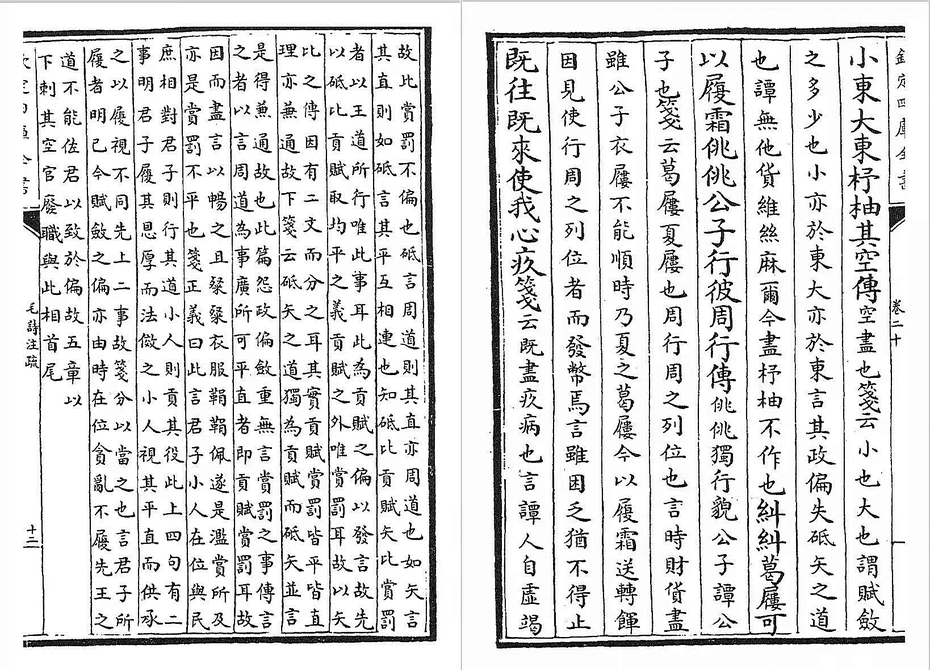 故比賞罰不偏也砥言周道則其直亦周道也如矢言
其直則如砥言其平互相連也知砥比貢賦矢比賞罰
者以王道所行唯此事耳此為貢賦之偏以發言故先
以砥比貢賦取均平之義貢賦之外唯賞罰耳故以矢
比之傳因有二文而分之耳其實貢賦賞罰皆平皆直
理亦兼通故下箋云砥矢之道獨為貢賦而砥矢並言
是得兼通故也此篇怨政偏斂重無言賞罰之事傳言
之者以言周道為事廣所可平直者即貢賦賞罰耳故
因而盡言以暢之且粲粲衣服鞙鞙佩遂是濫賞所及
亦是賞罰不平也箋正義曰此言君子小人在位與民
庶相對君子則行其道小人則貢其役此上四句有二
事明君子履其恩厚而法傚之小人視其平直而供承
之以履視不同先上二事故箋分以當之也言君子所
履者明已今賦斂之偏亦由時在位貪亂不履先王之
道不能佐君以致於偏故五章以
下刺其空官廢職與此相首尾
毛詩注疏
十二
欽定四庫全書
卷二十
小東大東杼柚其空傳空盡也箋云小也大也謂賦斂
之多少也小亦於東大亦於東言其政偏失砥矢之道
也譚無他貨維絲麻爾今盡杼柚不作也糾糾葛屨可
以履霜佻佻公子行彼周行傳佻佻獨行貌公子譚公
子也箋云葛屨夏屨也周行周之列位也言時財貨盡
雖公子衣屨不能順時乃夏之葛屨今以履霜送轉餫
因見使行周之列位者而發幣焉言雖困乏猶不得止
既往既來使我心疚箋云既盡疚病也言譚人自虛竭